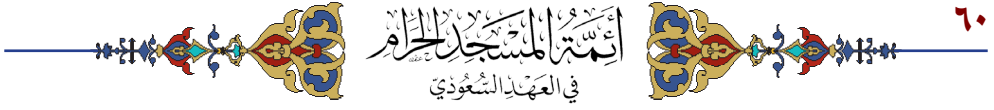 ٦٠
أَئِمَّةُ المَسْجِدِ الحَرَامِ
فِي العَهْدِ السُّعُودِيّ